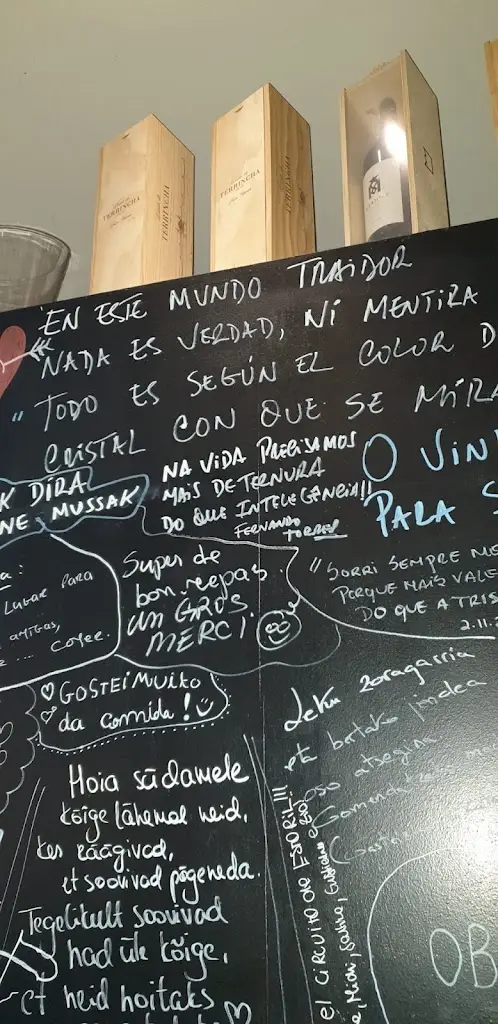 TERRINCHA
TERRINCHA
TERRINCHA
EN ESTE MUNDO TRAIDOR
NADA ES VERDAD, NI MENTIRA
" TODO ES SEGÚN EL COLOR D
CRISTAL CON QUE SE MIRA
K DIRA
NE MUSSAK
NA VIDA PRECISAMOS
MAIS DE TERNURA
DO QUE INTELEGÊNCIA!!
FERNANDO
TORRES
O VIN
PARA S
LUGAR PARA
AMIGAS,
COMER.
Super de
bon repas
UN GROS
MERCI!
" SORRI SEMPRE ME
PORQUE MAIS VALE
DO QUE A TRIS
2.11.2
GOSTEI MUITO
da comida!
Leku zoragarria
eta bertako jendea
oso atsegina
Hoia südamele
kõige lähemal neid,
kes räägivad,
et soovivad põgeneda.
Tegelikult soovivad
nad üle kõige,
et neid hoitaks
el CIRCUITO DE ESTORIL!!!
OB